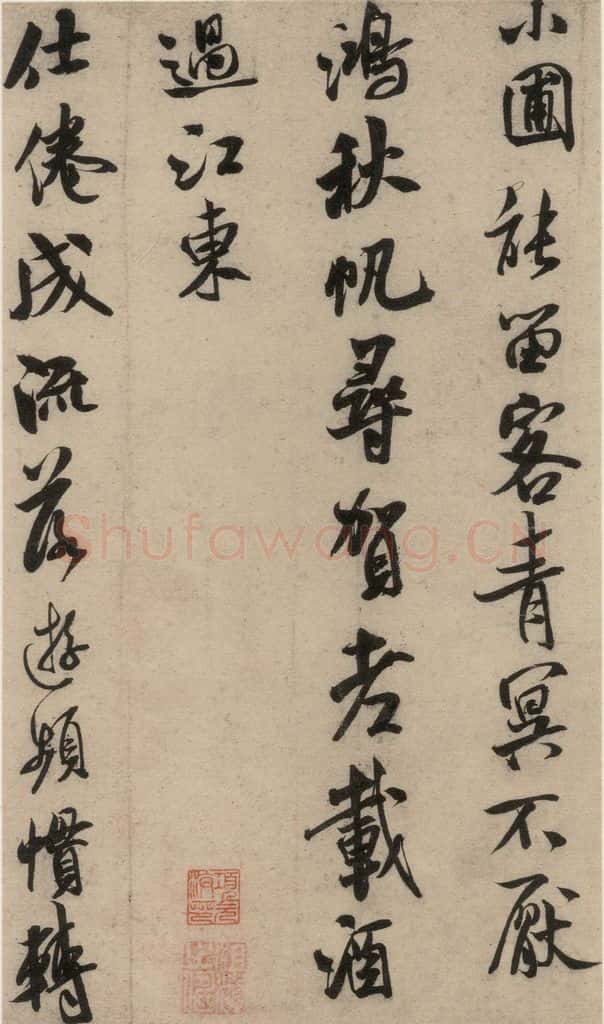 小圃能留客青冥不厭
鴻秋帆尋賀老載酒
過江東
仕倦成流落遊頻慣轉
Shufawang.CN